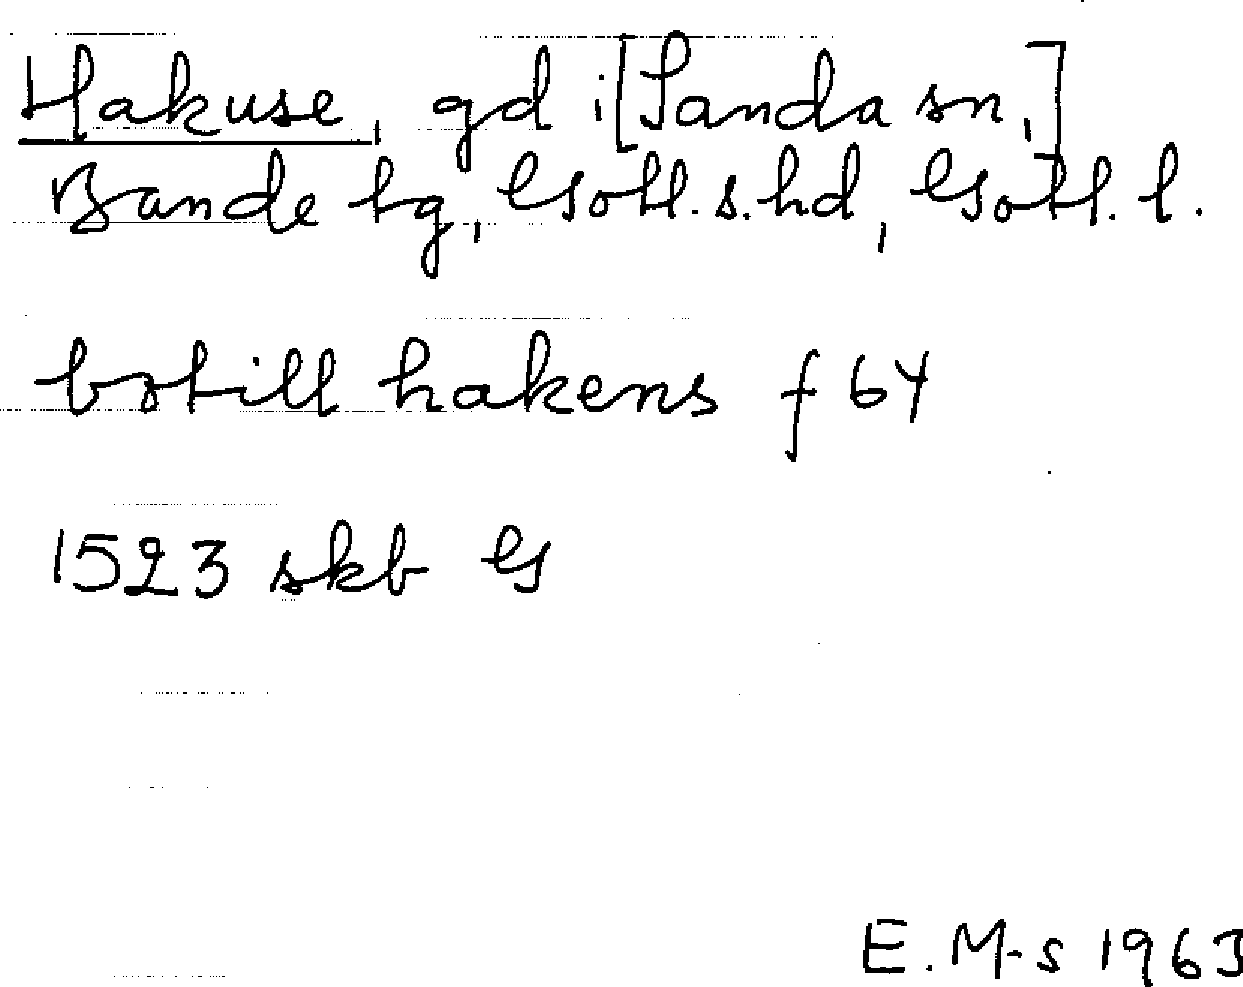 Hakuse, gd i [Sanda sn,]
Bande tg, Gotl. s. hd, Gotl. l.
botill hakens f 64
1523 skb G
E. M-s 1963